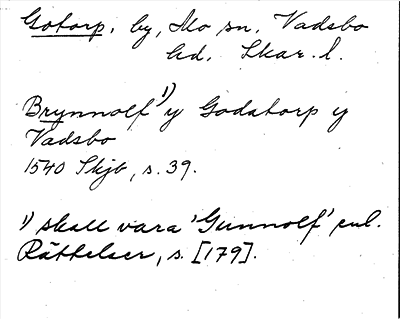 Gotorp, by, Mo sn, Vadsbo
hd, Skar. l.
Brynnolf¹⁾ y Godatorp y
Vadsbo
1540 Skjb, s. 39.
¹⁾ skall vara 'Gunnolf' enl.
Rättelser, s. [179].